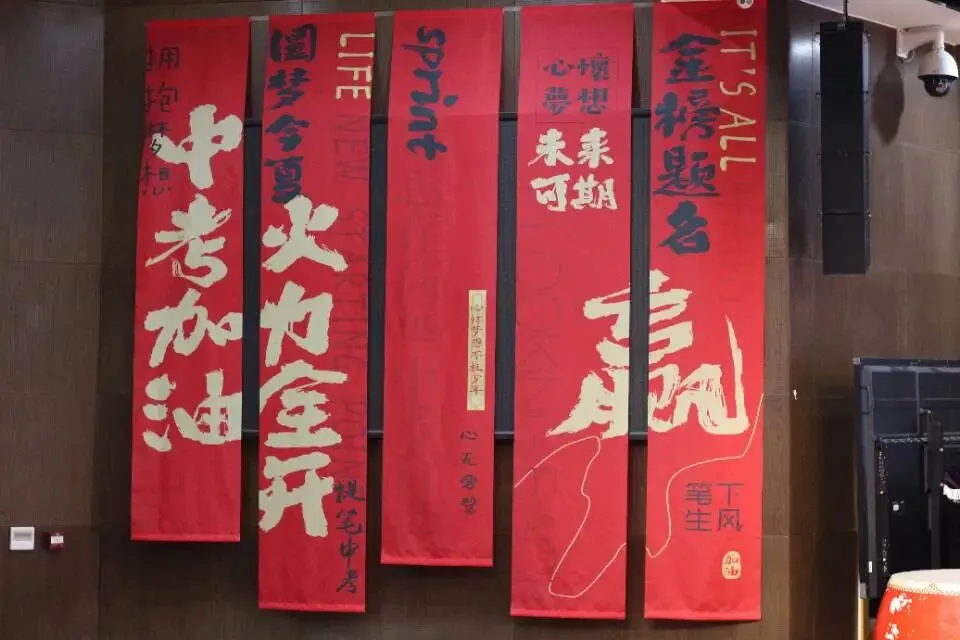 拥抱梦想
中考加油
圆梦今夏
LIFE
火力全开
NEW STARTING POINT
提笔中考
sprint
心无旁骛
心懷
夢想
未来
可期
金榜题名
IT'S ALL
赢
笔下
生风
加油